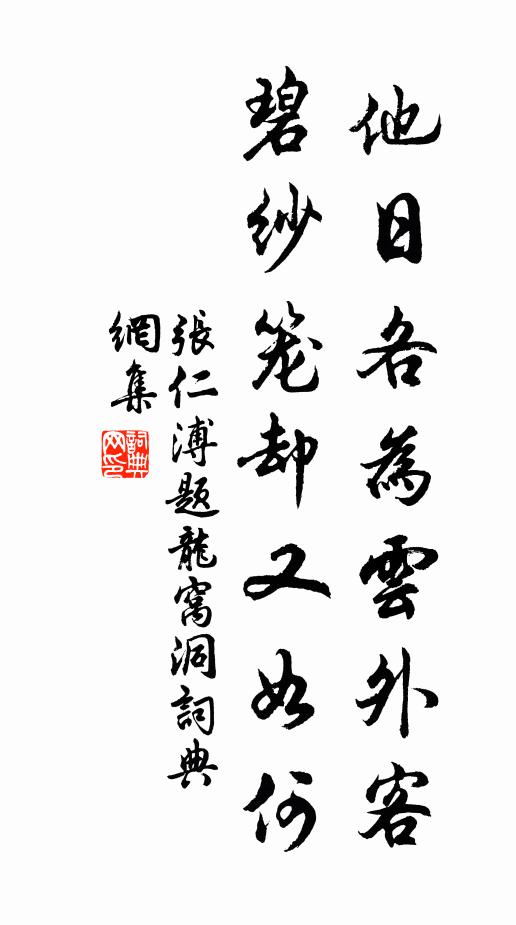 他日各為雲外客
碧紗笼却又如何
張仁溥题龍窩洞詞典
網集
詞典
网印